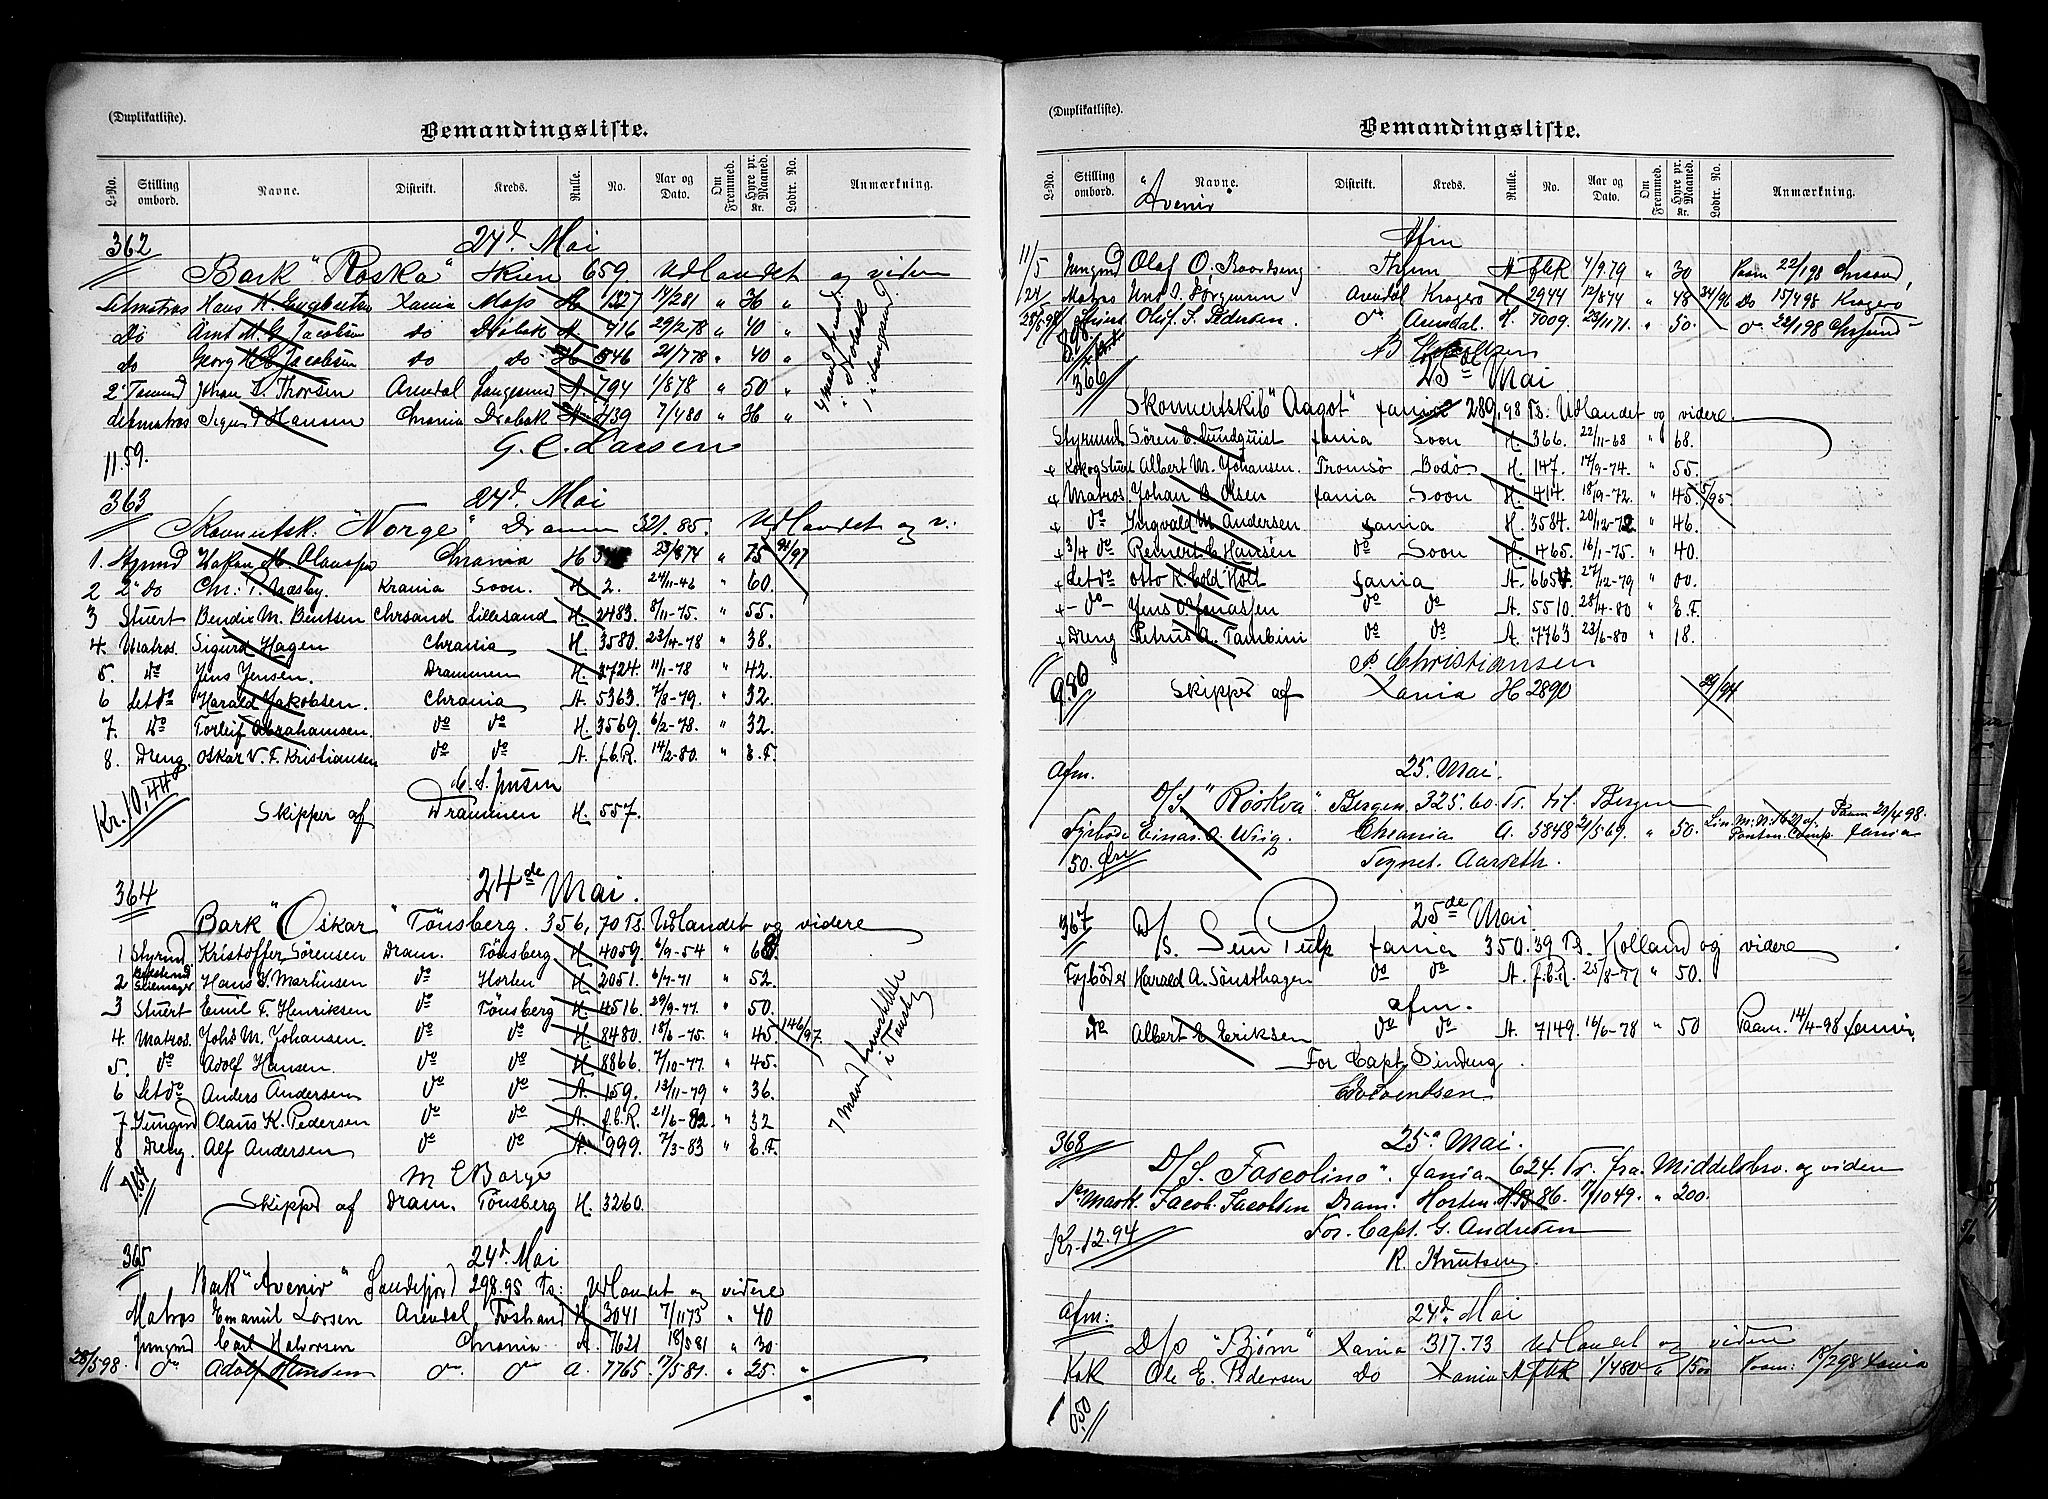 (Duplikatliste).
Bemandingsliste.
L-No. Stilling ombord. Navne. Distrikt. Kreds. Rulle. No. Aar og Dato. Om Fremmed. Hyre pr. Maaned. Kr. Lodtr. No. Anmærkning.
362 24d. Mai
Bark "Roska" Skien 659 Udlandet og videre
Letmatros Hans Xania Moss H 1327 14/281 " 36 "
Do Arnt M. G. Jacobsen do Drøbak A 416 29/278 " 40 "
do Georg Jacobsen do do H 546 21/778 " 40 "
2 Johan Thorsen Arendal Langesund A. 794 1/878 " 50 "
Letmatros Hansen Chrania Drøbak A. 439 7/480 " 36 "
G. C. Larsen
11.59.
363 24d. Mai
"Norge" Dramm 321.85. Udlandet og v.
1. Styrmd Hakon M. Chrania H 23/874 " 75 94/97
2 2" do Chr. T. Næsby. Krania Soon. H 2. 24/11-46 " 60.
3 Stuert Bendix M. Bentsen Chrsand Lillesand H. 2483. 8/11-75. " 55.
4. Matros. Sigurd Hagen Chrania H. 3580. 23/4-78 " 38.
5. do Jens Jensen. Drammen H. 3724. 11/1-78 " 42.
6 Letdo Harald Jakobsen. Chrania A. 5363 7/8-79. " 32.
7. do Torleif Abrahamsen. do do H. 3569. 6/2-78. " 32.
8. Dreng. Oskar V. F. Kristiansen do do A. f.b.R. 14/2-80. " E.F.
C. S. Jensen
Kr. 10,44 Skipper af Drammen H. 557.
364 24de Mai.
Bark "Oskar" Tönsberg. 356,70 Ts. Udlandet og videre
1 Styrmd Kristoffer Sörensen Dram. Tönsberg H. 4059. 6/9-54 " 68.
2 Hans S. Martinsen do Horten H. 2051. 6/7-71 " 52.
3 Stuert Emil F. Henriksen do Tönsberg H. 4516. 29/9-77. " 50.
4. Matros. Johs M. Johansen. do do H. 8480. 18/6-75. " 45. 146/97
5. do Adolf Hansen. do do H. 8866. 7/10-77. " 45.
6 Letdo Anders Andersen do do A. 159. 13/11-79 " 36.
7 Jungmd Olaus K. Pedersen do do A. f.b.R. 21/6-82. " 32
8 Dreng. Alf Andersen do do A. 999. 7/3-83 " E.F.
7 Mand fremstillet i Tönsbg
M E Borge
7.64 Skipper af Dram. Tönsberg H. 3260.
365 24d. Mai
Bark "Avenir" Sandefjord 298.95 Ts: Udlandet og videre
Matros Emanuel Larsen Arendal H. 3041 7/1173 " 40
Jungmd Carl Halvorsen Chrania A. 7621 18/581 " 30
28/598. do Adolf Hansen do do A. 7765. 17/581. " 25. "
(Duplikatliste).
Bemandingsliste.
L-No. Stilling ombord. Navne. Distrikt. Kreds. Rulle. No. Aar og Dato. Om Fremmed. Hyre pr. Maaned. Kr. Lodtr. No. Anmærkning.
"Avenir"
Afm
11/5 Jungmd Olaf O. Thjem A fbR 4/9.79 " 30 Paam 22/198
/24 Matros Knut S. Jørgensen Arendal Kragerø H. 2944 12/874 " 48 34/96 Do 15/498 Kragerø
28/598 Oluf. S. Pedersen. do Arendal. H. 7009. 23/1171. " 50. do 22/198
366 25de Mai
Skonnertskib "Aagot" Xania 289,98 Ts: Udlandet og videre
Styrmd Sören E. Lundquist Xania Soon H. 366. 22/11-68 " 68.
+ Kok og Stuert Albert M. Johansen. Tromsö Bodö H. 147. 17/9-74. " 55.
+ Matros. Johan B. Olsen Xania Soon H. 414. 18/9-72. " 45. 5/95
+ do Ingvald M. Andersen Xania H. 3584. 20/12-72 " 46.
+ 3/4 do Reinert E. Hansen do Soon H. 465. 16/1-75. " 40.
+ Letdo Otto K. Cold Holt Xania A. 27/12-79 " 00.
+ -do- Jens O. Jonassen do do A. 5510. 28/4-80 " E.F.
+ Dreng Petrus A. Tambini do do A. 7763 23/6-80 " 18.
P. Christiansen
9.80 Skipper af Xania H 2890 29/94
Afm. 25. Mai.
D/S "Röskva" Bergen. 325.60. Ts. til Bergen
Fyrböder Einar. A. Wiig. Chrania A. 5848 21/569. " 50. Paam 20/4 98. Xania
50. Øre Tegnet. Aarseth.
367 25de Mai
D/S. Sem Pulp Xania 350.39 Ts. Holland og videre
Fyrböder Harald A. Sönsthagen do do A. f.b.R. 25/8-77 " 50.
afm.
do Albert E Eriksen do do A. 7149. 16/6-78 " 50 Paam. 14/4-98 Xania.
For Capt. Dindeng
368 25d Mai.
D/S. "Toscolino". Xania 624. Ts. fra. Middelsbro. og videre
Jacob. Jacobsen Dram. Horten. 86. 7/1049. " 200.
Kr. 12.94 For. Capt. G. Andresen
R. Knutsen
Afm: 24d. Mai
D/S "Bjørn" Xania 317.73 Udlandet og videre
Kok Ole E. Pedersen Do Xania A fbR 1/480 Paam: 18/298 Xania
0.50